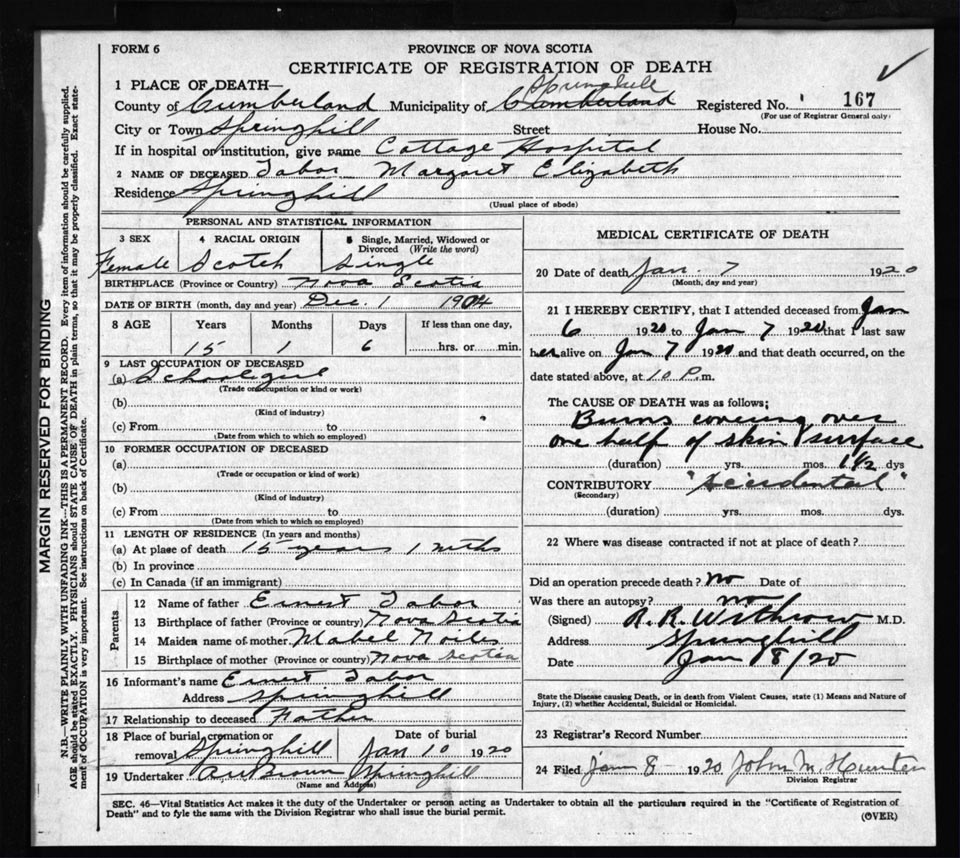 FORM 6
PROVINCE OF NOVA SCOTIA
CERTIFICATE OF REGISTRATION OF DEATH
1 PLACE OF DEATH—
Springhill
County of Cumberland Municipality of Cumberland Registered No. 167
(For use of Registrar General only)
City or Town Springhill Street House No.
If in hospital or institution, give name Cottage Hospital
2 NAME OF DECEASED Tabor Margaret Elizabeth
Residence Springhill
(Usual place of abode)
PERSONAL AND STATISTICAL INFORMATION
3 SEX 4 RACIAL ORIGIN 5 Single, Married, Widowed or Divorced (Write the word)
Female Scotch Single
BIRTHPLACE (Province or Country) Nova Scotia
DATE OF BIRTH (month, day and year) Dec. 1 1904
8 AGE Years Months Days If less than one day,
15 1 6 hrs. or min.
9 LAST OCCUPATION OF DECEASED
(a) Schoolgirl
(Trade or occupation or kind or work)
(b)
(Kind of industry)
(c) From to
(Date from which to which so employed)
10 FORMER OCCUPATION OF DECEASED
(a)
(Trade or occupation or kind of work)
(b)
(Kind of industry)
(c) From to
(Date from which to which so employed)
11 LENGTH OF RESIDENCE (In years and months)
(a) At place of death 15 years 1 mths
(b) In province
(c) In Canada (if an immigrant)
Parents
12 Name of father Ernest Tabor
13 Birthplace of father (Province or country) Nova Scotia
14 Maiden name of mother Mabel Noiles
15 Birthplace of mother (Province or country) Nova Scotia
16 Informant's name Ernest Tabor
Address Springhill
17 Relationship to deceased Father
18 Place of burial, cremation or removal Springhill Date of burial Jan 10 1920
19 Undertaker Brown Springhill
(Name and Address)
MEDICAL CERTIFICATE OF DEATH
20 Date of death Jan. 7 1920
(Month, day and year)
21 I HEREBY CERTIFY, that I attended deceased from Jan
6 1920 to Jan 7 1920 that I last saw
her alive on Jan 7 1920 and that death occurred, on the
date stated above, at 10 P.m.
The CAUSE OF DEATH was as follows;
Burns covering over
one half of skin surface
(duration) yrs. mos. 1 1/2 dys
CONTRIBUTORY "Accidental"
(Secondary)
(duration) yrs. mos. dys.
22 Where was disease contracted if not at place of death?
Did an operation precede death? No Date of
Was there an autopsy? no
(Signed) R. R. Withrow M.D.
Address Springhill
Date Jan 8/20
State the Disease causing Death, or in death from Violent Causes, state (1) Means and Nature of
Injury, (2) whether Accidental, Suicidal or Homicidal.
23 Registrar's Record Number
24 Filed Jan 8 1920 John M. Hunter
Division Registrar
SEC. 46—Vital Statistics Act makes it the duty of the Undertaker or person acting as Undertaker to obtain all the particulars required in the "Certificate of Registration of
Death" and to fyle the same with the Division Registrar who shall issue the burial permit.
(OVER)
MARGIN RESERVED FOR BINDING
N.B.—WRITE PLAINLY WITH UNFADING INK—THIS IS A PERMANENT RECORD. Every item of information should be carefully supplied.
AGE should be stated EXACTLY. PHYSICIANS should STATE CAUSE OF DEATH in plain terms, so that it may be properly classified. Exact statement of OCCUPATION is very important. See instructions on back of Certificate.